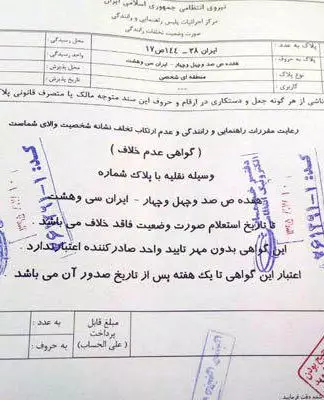 نیروی انتظامی جمهوری اسلامی ایران
مرکز اجرائیات پلیس راهنمایی و رانندگی
صورت وضعیت تخلفات رانندگی
پلاک به عدد :
ایران ۳۸ - ۱۴۴ص۱۷
محل رسیدگی :
پلاک به حروف :
هفده ص صد وچهل وچهار - ایران سی وهشت
واحد رسیدگی :
نوع پلاک
منطقه ای شخصی
محل پذیرش :
کاربری :
تاریخ پذیرش :
ناشی از هر گونه جعل و دستکاری در ارقام و حروف این سند متوجه مالک یا متصرف قانونی پلا
رعایت مقررات راهنمایی و رانندگی و عدم ارتکاب تخلف نشانه شخصیت والای شماست
( گواهی عدم خلاف )
وسیله نقلیه با پلاک شماره
هفده ص صد وچهل وچهار - ایران سی وهشت
تا تاریخ استعلام صورت وضعیت فاقد خلاف می باشد
این گواهی بدون مهر تایید واحد صادرکننده اعتبار ندارد
اعتبار این گواهی تا یک هفته پس از تاریخ صدور آن می باشد
مبلغ قابل پرداخت
( علی الحساب )
به عدد :
به حروف :
شده دقت فرمایید